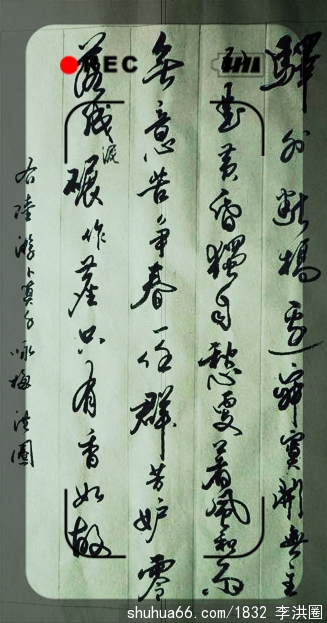 REC
驛外斷橋邊寂寞開無主
已是黃昏獨自愁更著風和雨
無意苦爭春一任群芳妒零
落成泥碾作塵只有香如故
右陸游卜算子咏梅 洪圈
shuhua66.com/1832 李洪圈